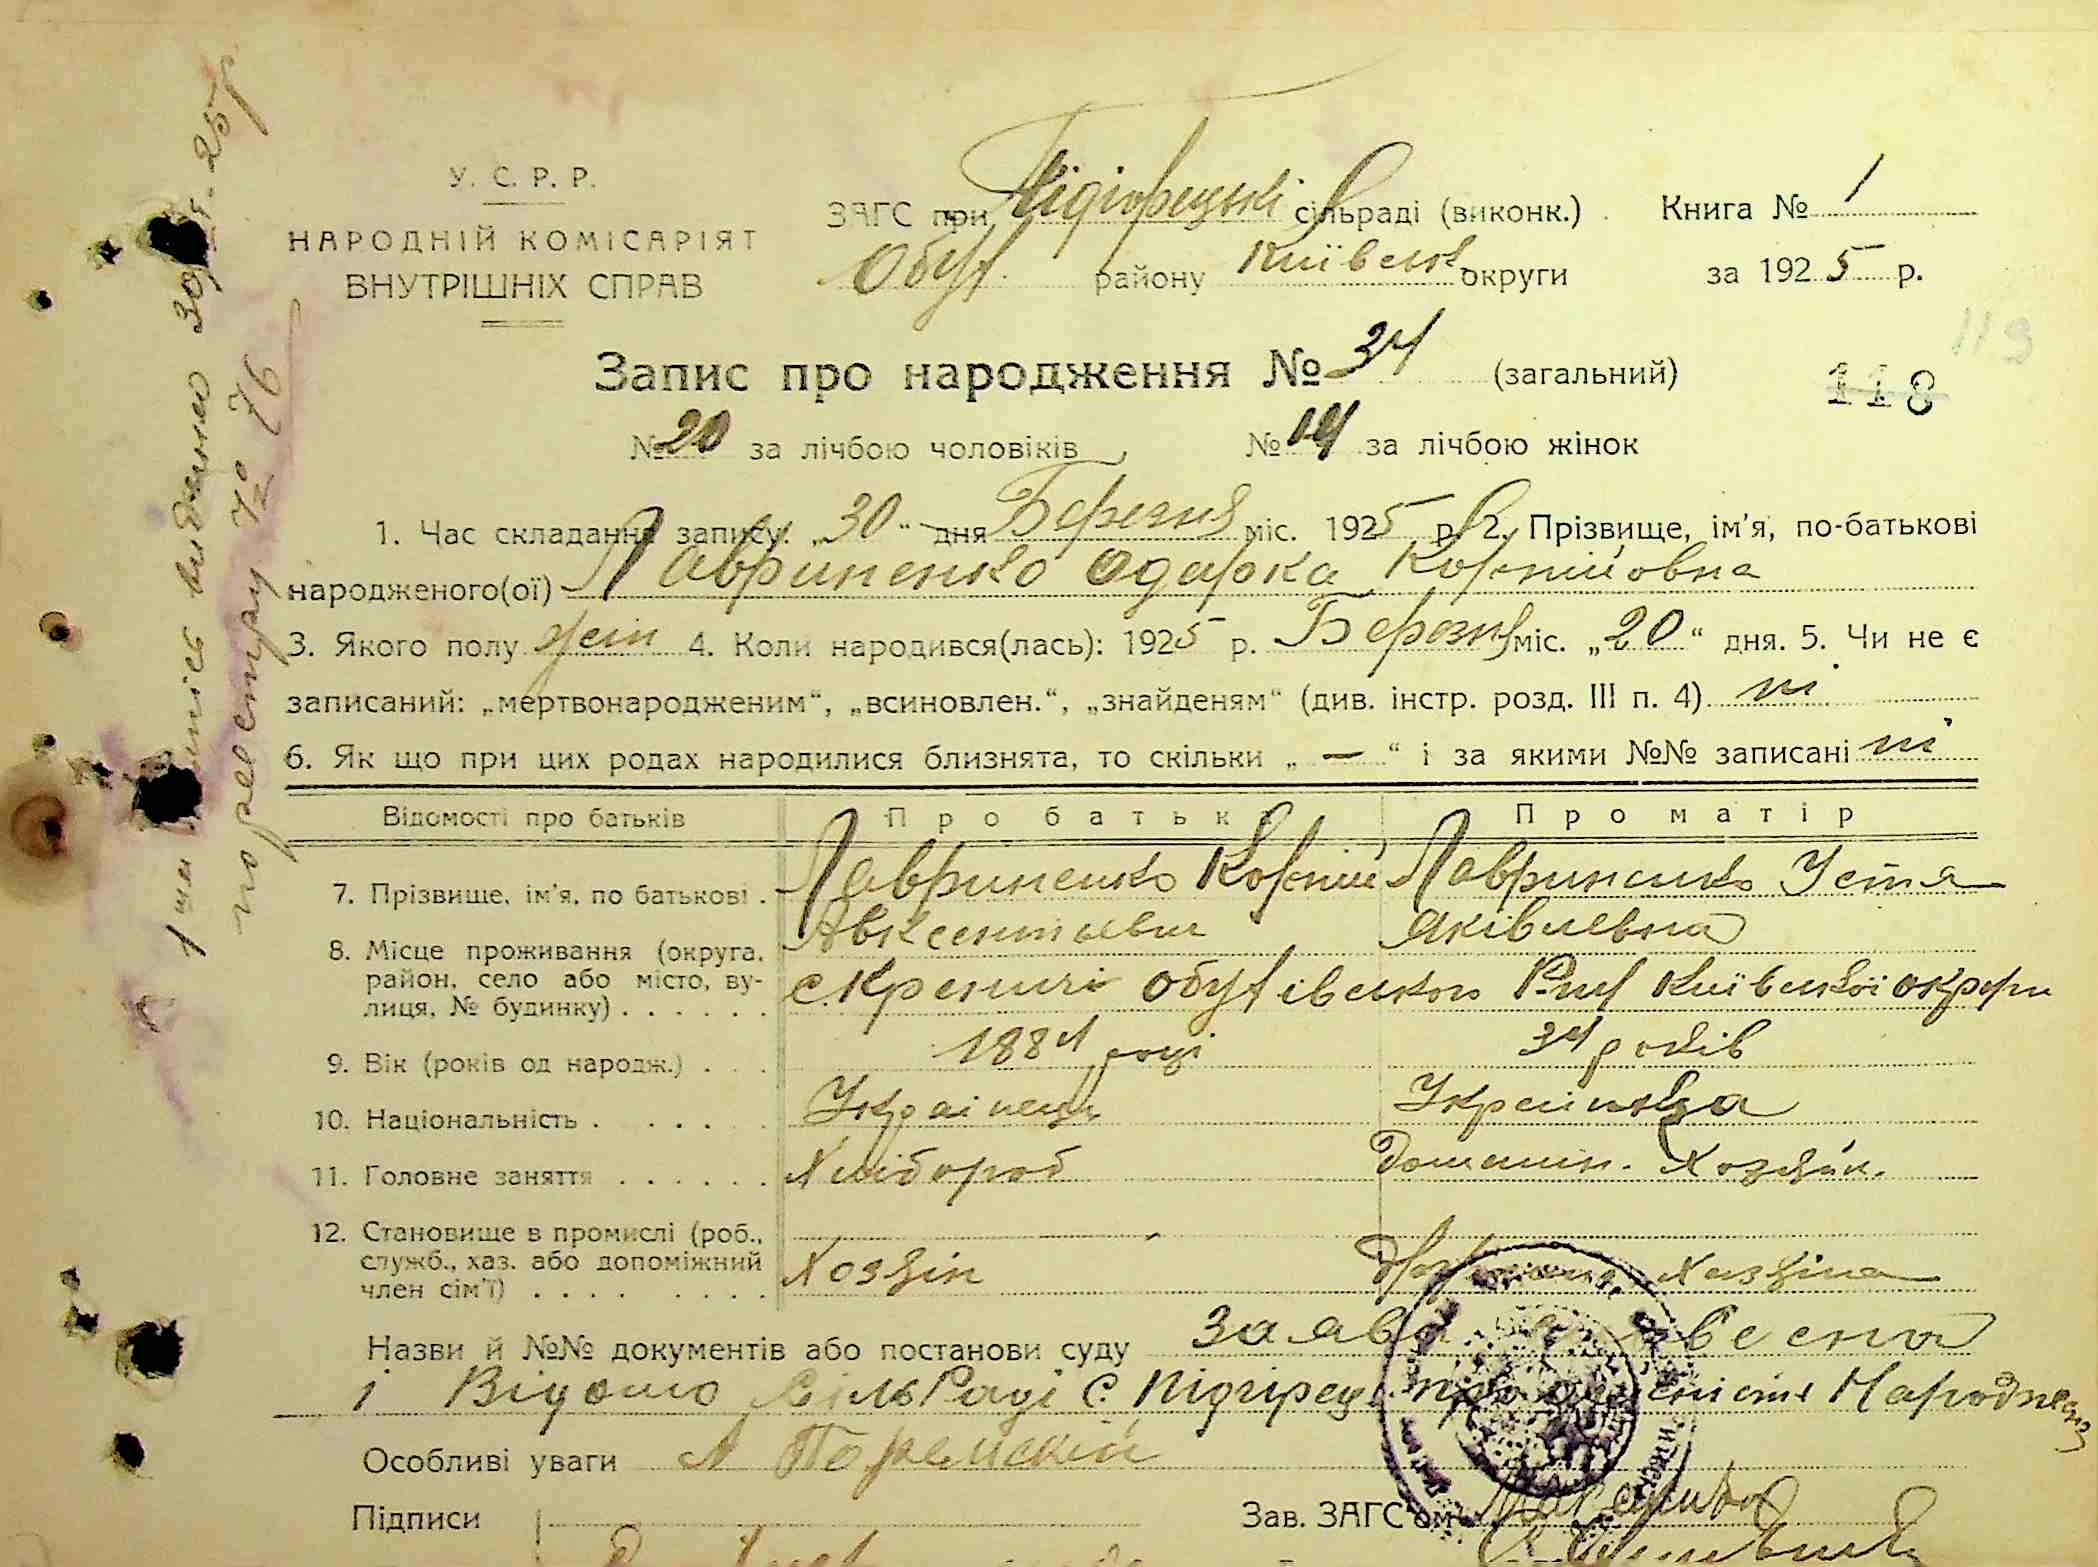 У. С. Р. Р.
НАРОДНІЙ КОМІСАРІЯТ
ВНУТРІШНІХ СПРАВ
ЗАГС при Підгорецькі сільраді (виконк.) Книга № 1
Обух. району Київськ. округи за 1925 р.
Запис про народження № 34 (загальний)
118
119
№ 20 за лічбою чоловіків № 14 за лічбою жінок
1. Час складання запису: „30“ дня Березня міс. 1925 р. 2. Прізвище, ім’я, по-батькові
народженого(ої) Лавриненко Одарка Корнійовна
3. Якого полу жін 4. Коли народився(лась): 1925 р. Березня міс. „20“ дня. 5. Чи не є
записаний: „мертвонародженим“, „всиновлен.“, „знайденям“ (див. інстр. розд. III п. 4) ні
6. Як що при цих родах народилися близнята, то скільки „ — “ і за якими №№ записані ні
Відомості про батьків Про батька Про матір
7. Прізвище, ім’я, по батькові . Лавриненко Корній Лавриненко Устя
Авксентіевич Яківлевна
8. Місце проживання (округа, район, село або місто, вулиця, № будинку) . . . . . . с. Креничі Обухівського Рай Київської округи
9. Вік (років од народж.) . . . 1884 році 34 років
10. Національність . . . . . Українець Українка
11. Головне заняття . . . . . . Хлібороб Домашн. Хозяйн.
12. Становище в промислі (роб., служб., хаз. або допоміжний член сім’ї) . . . . . . . . Хозяін Хазяіна
Назви й №№ документів або постанови суду Заява
і Відомо СільРаді с. Підгірец про Народнення
Особливі уваги
Підписи Зав. ЗАГС’ом Макаренко
видано 30/
по реєстру № 76